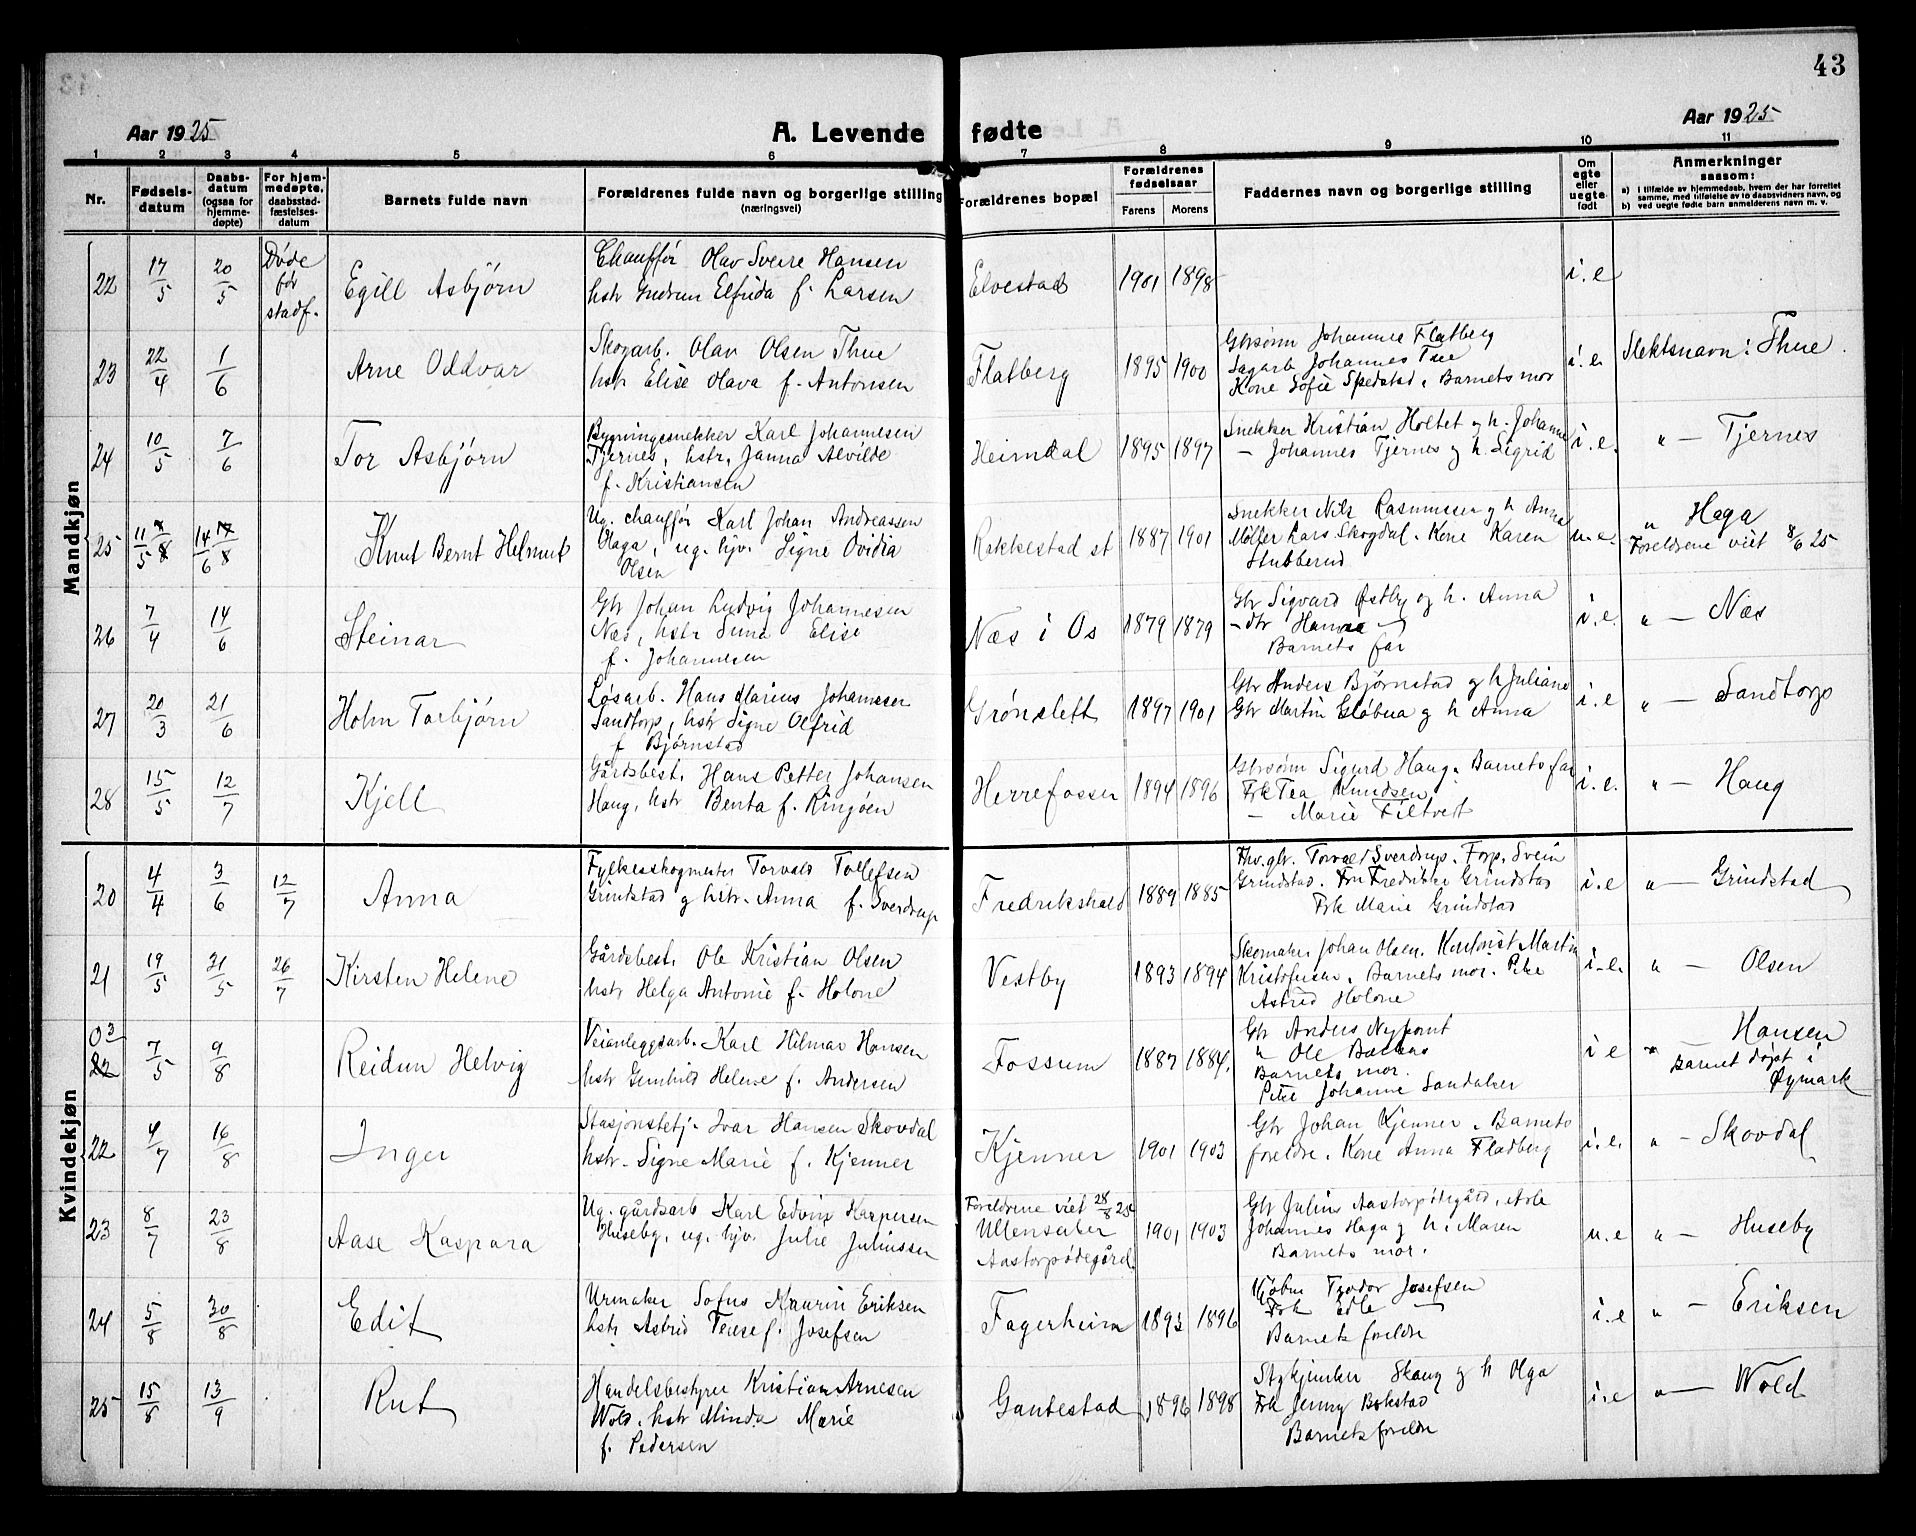 43
Aar 1925
A. Levende fødte
Aar 1925
1 2 3 4 5 6 7 8 9 10 11
Nr.
Fødsels-
datum
Daabs-
datum
(ogsaa for
hjemme-
døpte)
For hjem-
medøpte,
daabsstad-
fæstelses-
datum
Barnets fulde navn
Forældrenes fulde navn og borgerlige stilling
(næringsvei)
Forældrenes bopæl
Forældrenes
fødselsaar
Farens Morens
Faddernes navn og borgerlige stilling
Om
egte
eller
uegte
født
Anmerkninger
saasom:
a) i tilfælde av hjemmedaab, hvem der har forrettet
samme, med tilføielse av to daabsvidners navn, og
b) ved uegte fødte barn anmelderens navn m. v.
Mandkjøn
22 17/5 20/5 Døde
før
stadf.
Egill Asbjørn
Chauffør Olav Sverre Hansen
hstr Gudrun Elfrida f. Larsen
Elvestad 1901 1898 i.e
23 22/4 1/6 Arne Oddvar
Skogarb. Olav Olsen Thue
hstr Elise Olava f. Antonsen
Flatberg 1895 1900
Gbrsønn Johannes Flatberg
Sagarb Johannes Tue
Kone Sofie Spedstad. Barnets mor
i.e. Slektsnavn: Thue
24 10/5 7/6 Tor Asbjørn
Bygningssnekker Karl Johannesen
Tjernes, hstr. Janna Alvilde
f. Kristiansen
Heimdal 1895 1897
Snekker Kristian Holtet og h. Johanne
— Johannes Tjernes og h. Sigrid
i.e. " — Tjernes
25 11/5 14/6 17/8 Knut Bernt Helmut
Ug. chauffør Karl Johan Andreassen
Haga, ug. hjv. Signe Ovidia
Olsen
Rakkestad st 1887 1901
Snekker Nils Rasmussen og h Anna
Møller Lars Skogdal. Kone Karen
Stubberud
u.e. " Haga
Foreldrene viet 8/6 25
26 7/4 14/6 Steinar
Gbr Johan Ludvig Johannesen
Næs, hstr Elise
f. Johannesen
Næs i Os 1879 1879
Gbr Sigvard Østby og h. Anna
— dtr Hanna —
Barnets far
i.e. " — Næs
27 20/3 21/6 Holm Torbjørn
Løsarb. Hans Marius Johannesen
Sandtorp, hstr Signe Olfrid
f Bjørnstad
Grønslett 1897 1901
Gbr Anders Bjørnstad og h Juliane
Gbr Martin Gløbua og h Anna
i.e " — Sandtorp
28 15/5 12/7 Kjell
Gårdsbest. Hans Petter Johansen
Haug, hstr Benta f. Ringøen
Herrefosser 1894 1896
Gbrsønn Sigurd Haug. Barnets far
Frk Tea Knudsen
— Marie Filtvett
i.e. " — Haug
Kvindekjøn
20 4/4 3/6 12/7 Anna
Fylkesskogmester Torvald Tollefsen
Grindstad og hstr. Anna f. Sverdrup
Fredrikshald 1889 1885
Fhv. gbr. Torvald Sverdrup. Forp. Svein
Grindstad. Fru Fredrikke Grindstad
Frk Marie Grindstad
i.e " — Grindstad
21 19/5 31/5 26/7 Kirsten Helene
Gårdsbest. Ole Kristian Olsen
hstr Helga Antonie f. Holone
Vestby 1893 1894
Skomaker Johan Olsen. Kontorist Martin
Kristofersen. Barnets mor. Pike
Astrid Holone
i.e. " — Olsen
03
22 7/5 9/8 Reidun Helvig
Veianleggsarb. Karl Hilmar Hansen
hstr Gunhild Helene f. Andersen
Fossum 1887 1884.
Gbr Anders Nytomt
" Ole
Barnets mor.
Pike Johanne Sandaker
i e " Hansen
Barnet døpt i
Øymark
22 4/7 16/8 Inger
Stasjonstetj. Ivar Hansen Skovdal
hstr. Signe Marie f. Kjenner
Kjenner 1901 1903
Gbr Johan Kjenner. Barnets
foreldre. Kone Anna Fladberg
i.e. " — Skovdal
23 8/7 23/8 Aase Kaspara
Ug. gårdsarb Karl Edvin Kaspersen
Huseby, ug. hjv. Julie Juliussen
Foreldrene viet 28/8 25
Ullensaker
Aastorpødegård 1901 1903
Gbr Julius Aastorpødegård, Arb.
Johannes Haga og h. Maren
Barnets mor.
u.e " — Huseby
24 5/8 30/8 Edit
Urmaker Sofus Maurin Eriksen
hstr Astrid Terese f. Josefsen
Fagerheim 1893 1896
Kjøbm Teodor Josefsen
Frk Edle —
Barnets foreldre
i.e " — Eriksen
25 15/8 13/9 Rut
Handelsbestyrer Kristian Arnesen
Wold. hstr Minda Marie
f. Pedersen
Gautestad 1896 1898
Skaug og h Olga
Frk Jenny Bokstad
Barnets foreldre
i.e " — Wold